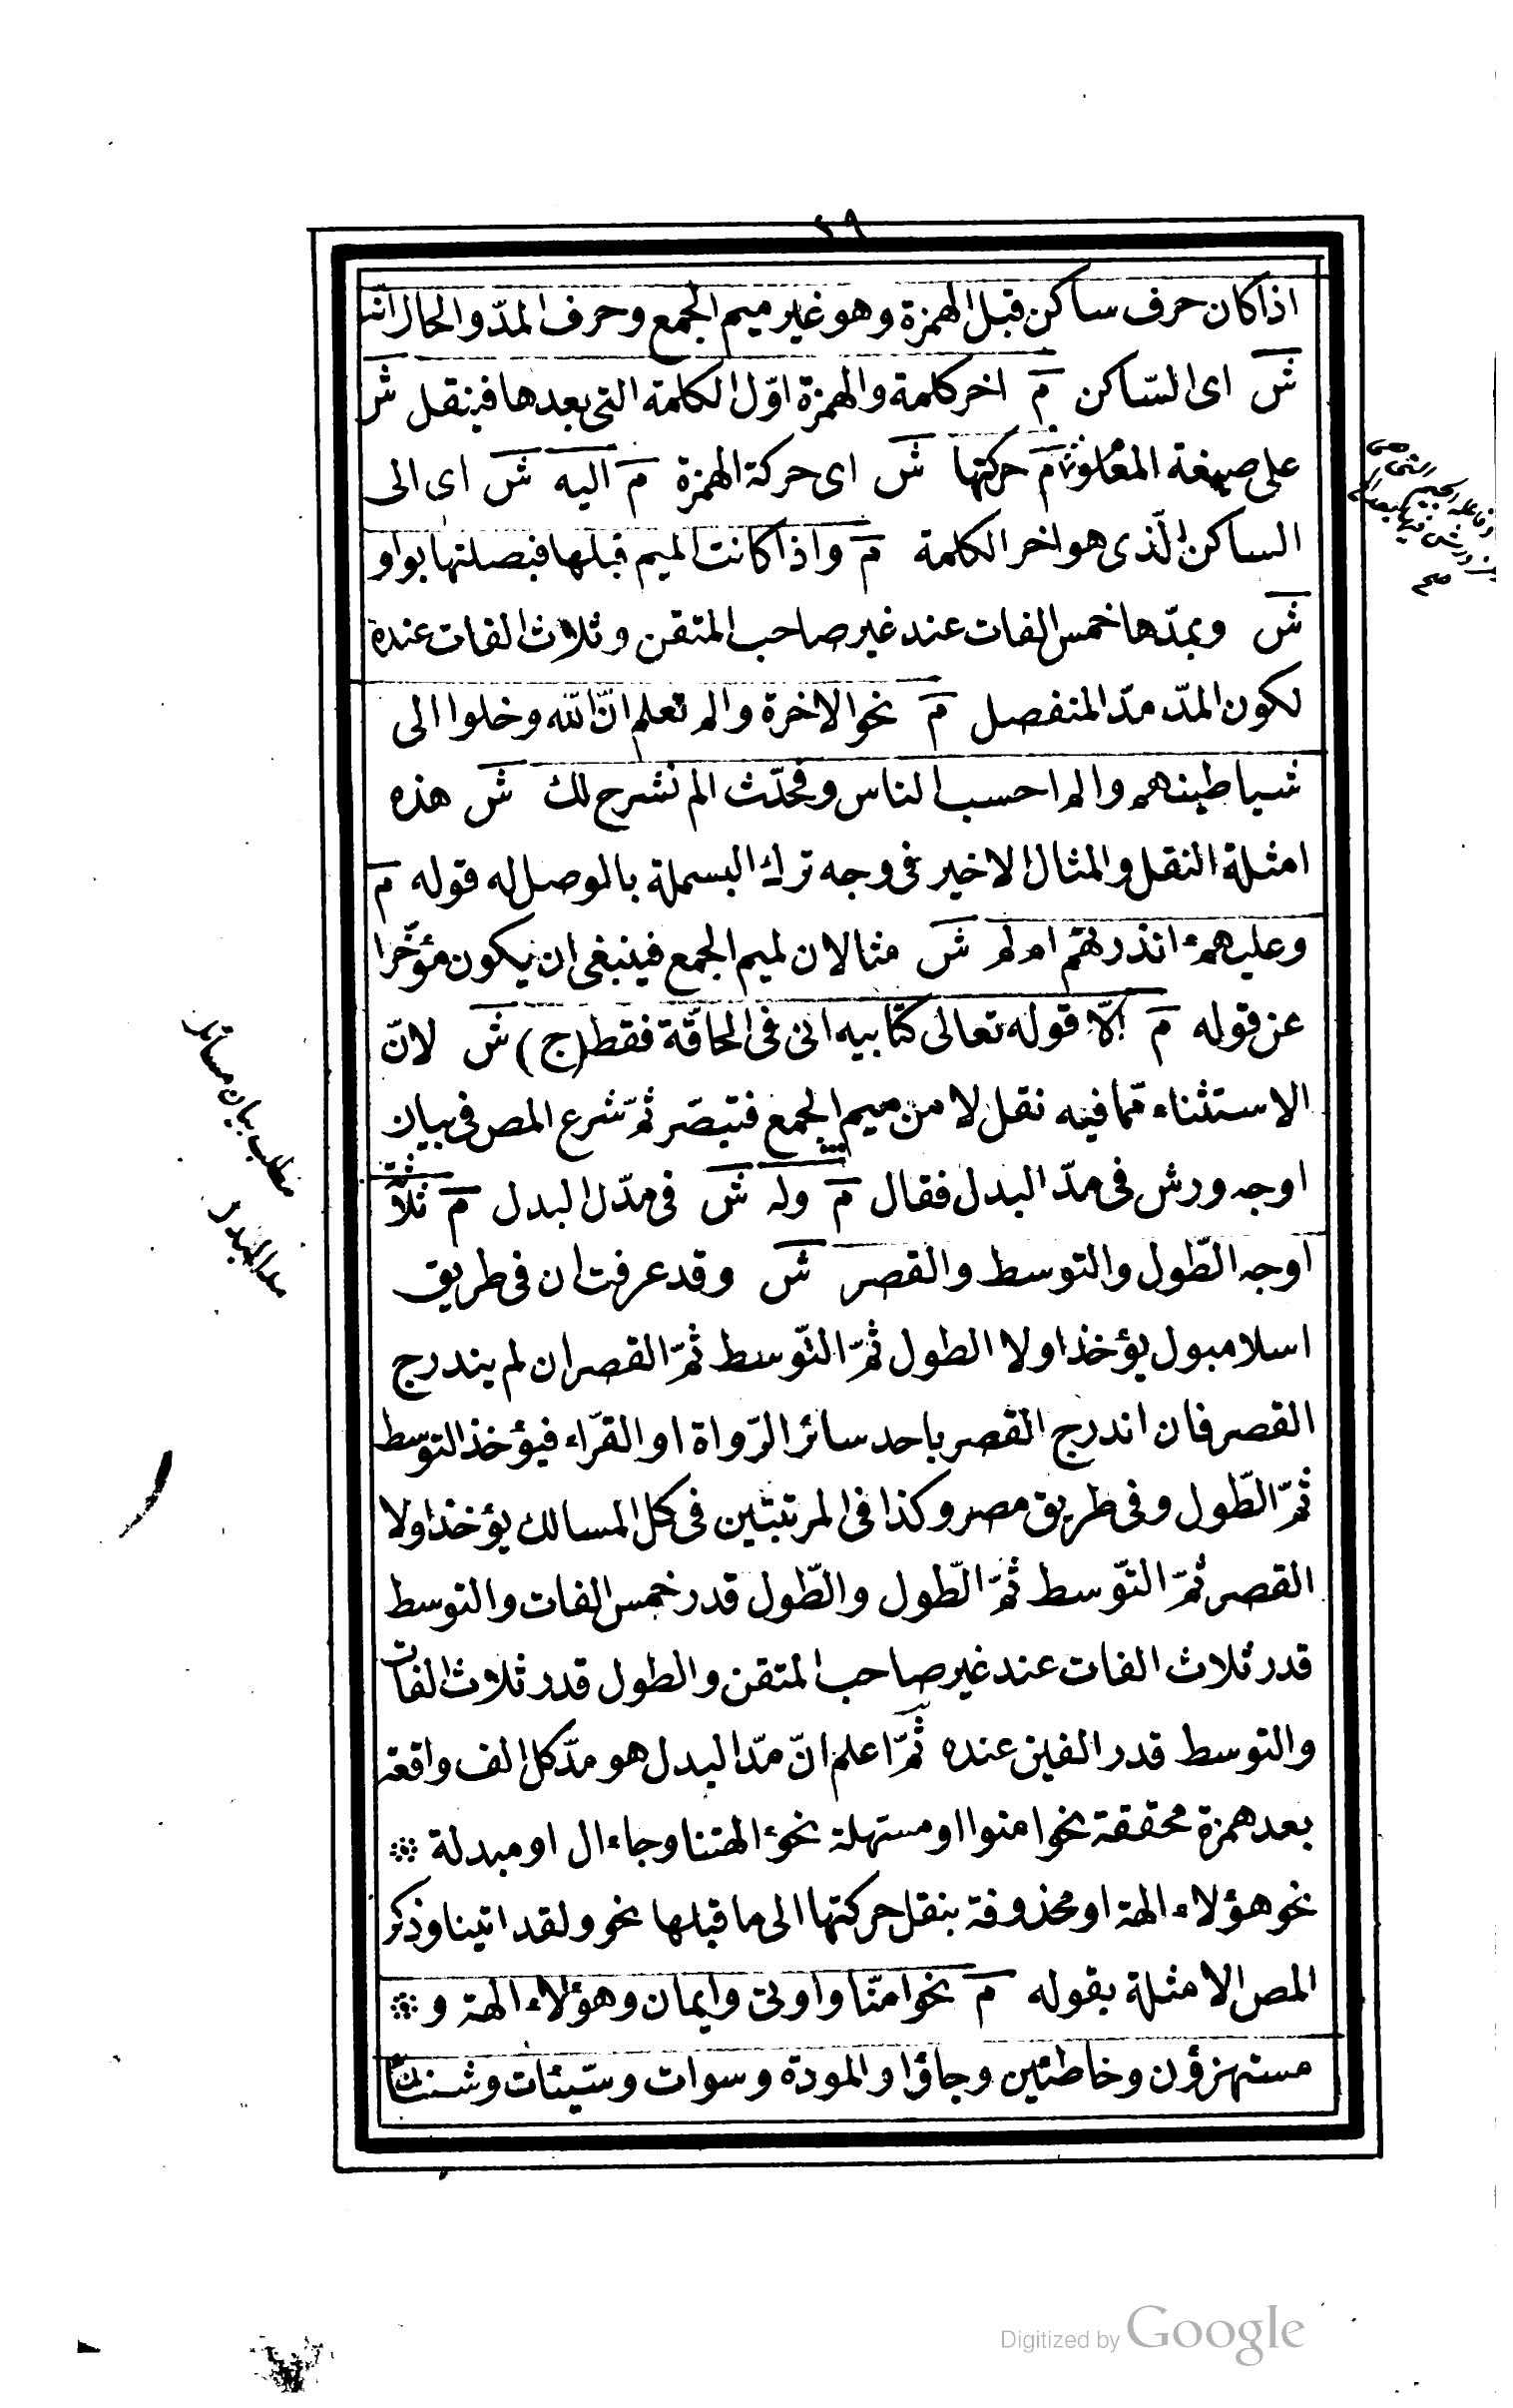 ٢٩
اذا كان حرف ساكن قبل الهمزة وهو غير ميم الجمع وحرف المدّ والحال انّه
ش اى السّاكن م اخر كلمة والهمزة اوّل الكلمة التى بعدها فينقل ش
على صيغة المعلوم م حركتها ش اى حركة الهمزة م اليه ش اى الى
الساكن الّذى هو اخر الكلمة م واذا كانت الميم قبلها فيصلتها بواو
ش ويمدّها خمس الفات عند غير صاحب المتقن وثلاث الفات عنده
لكون المدّ مدّ المنفصل م نحو الاخرة والم تعلم انّ الله وخلوا الى
شياطينهم والم احسب الناس وفحدّث الم نشرح لك ش هذه
امثلة النقل والمثال الاخير فى وجه ترك البسملة بالوصل له قوله م
وعليهمء انذرتهم ام لم ش مثالان لميم الجمع فينبغى ان يكون مؤخّرا
عن قوله م الّا قوله تعالى كتابيه انى فى الحاقّة فقط (ج) ش لانّ
الاستثناء ممّا فيه نقل لا من ميم الجمع فتبصّر ثمّ شرع المص فى بيان
اوجه ورش فى مدّ البدل فقال م وله ش فى مدّ البدل م ثلاثة
اوجه الطّول والتوسط والقصر ش وقد عرفت ان فى طريق
اسلامبول يؤخذ اولا الطول ثمّ التّوسط ثمّ القصر ان لم يندرج
القصر فان اندرج القصر باحد سائر الرّواة او القرّاء فيؤخذ التوسط
ثمّ الطّول وفى طريق مصر وكذا فى المرتبتين فى كل المسالك يؤخذ اولا
القصر ثمّ التّوسط ثمّ الطّول والطّول قدر خمس الفات والتوسط
قدر ثلاث الفات عند غير صاحب المتقن والطول قدر ثلاث الفات
والتوسط قدر الفين عنده ثمّ اعلم انّ مدّ البدل هو مدّ كل الف واقعة
بعد همزة محققة نحو امنوا او مستهلة نحوء الهتنا وجاء ال او مبدلة
نحو هؤلاء الهة او محذوفة بنقل حركتها الى ما قبلها نحو ولقد اتينا وذكر
المص الامثلة بقوله م نحو امنّا واوتى وايمان وهؤلاء الهة و
مستهزؤن وخاطئين وجاؤا والمودة وسوات وسيّئات وشنئان
مطلب بيان مسائل
مد البدل
صح
Digitized by Google